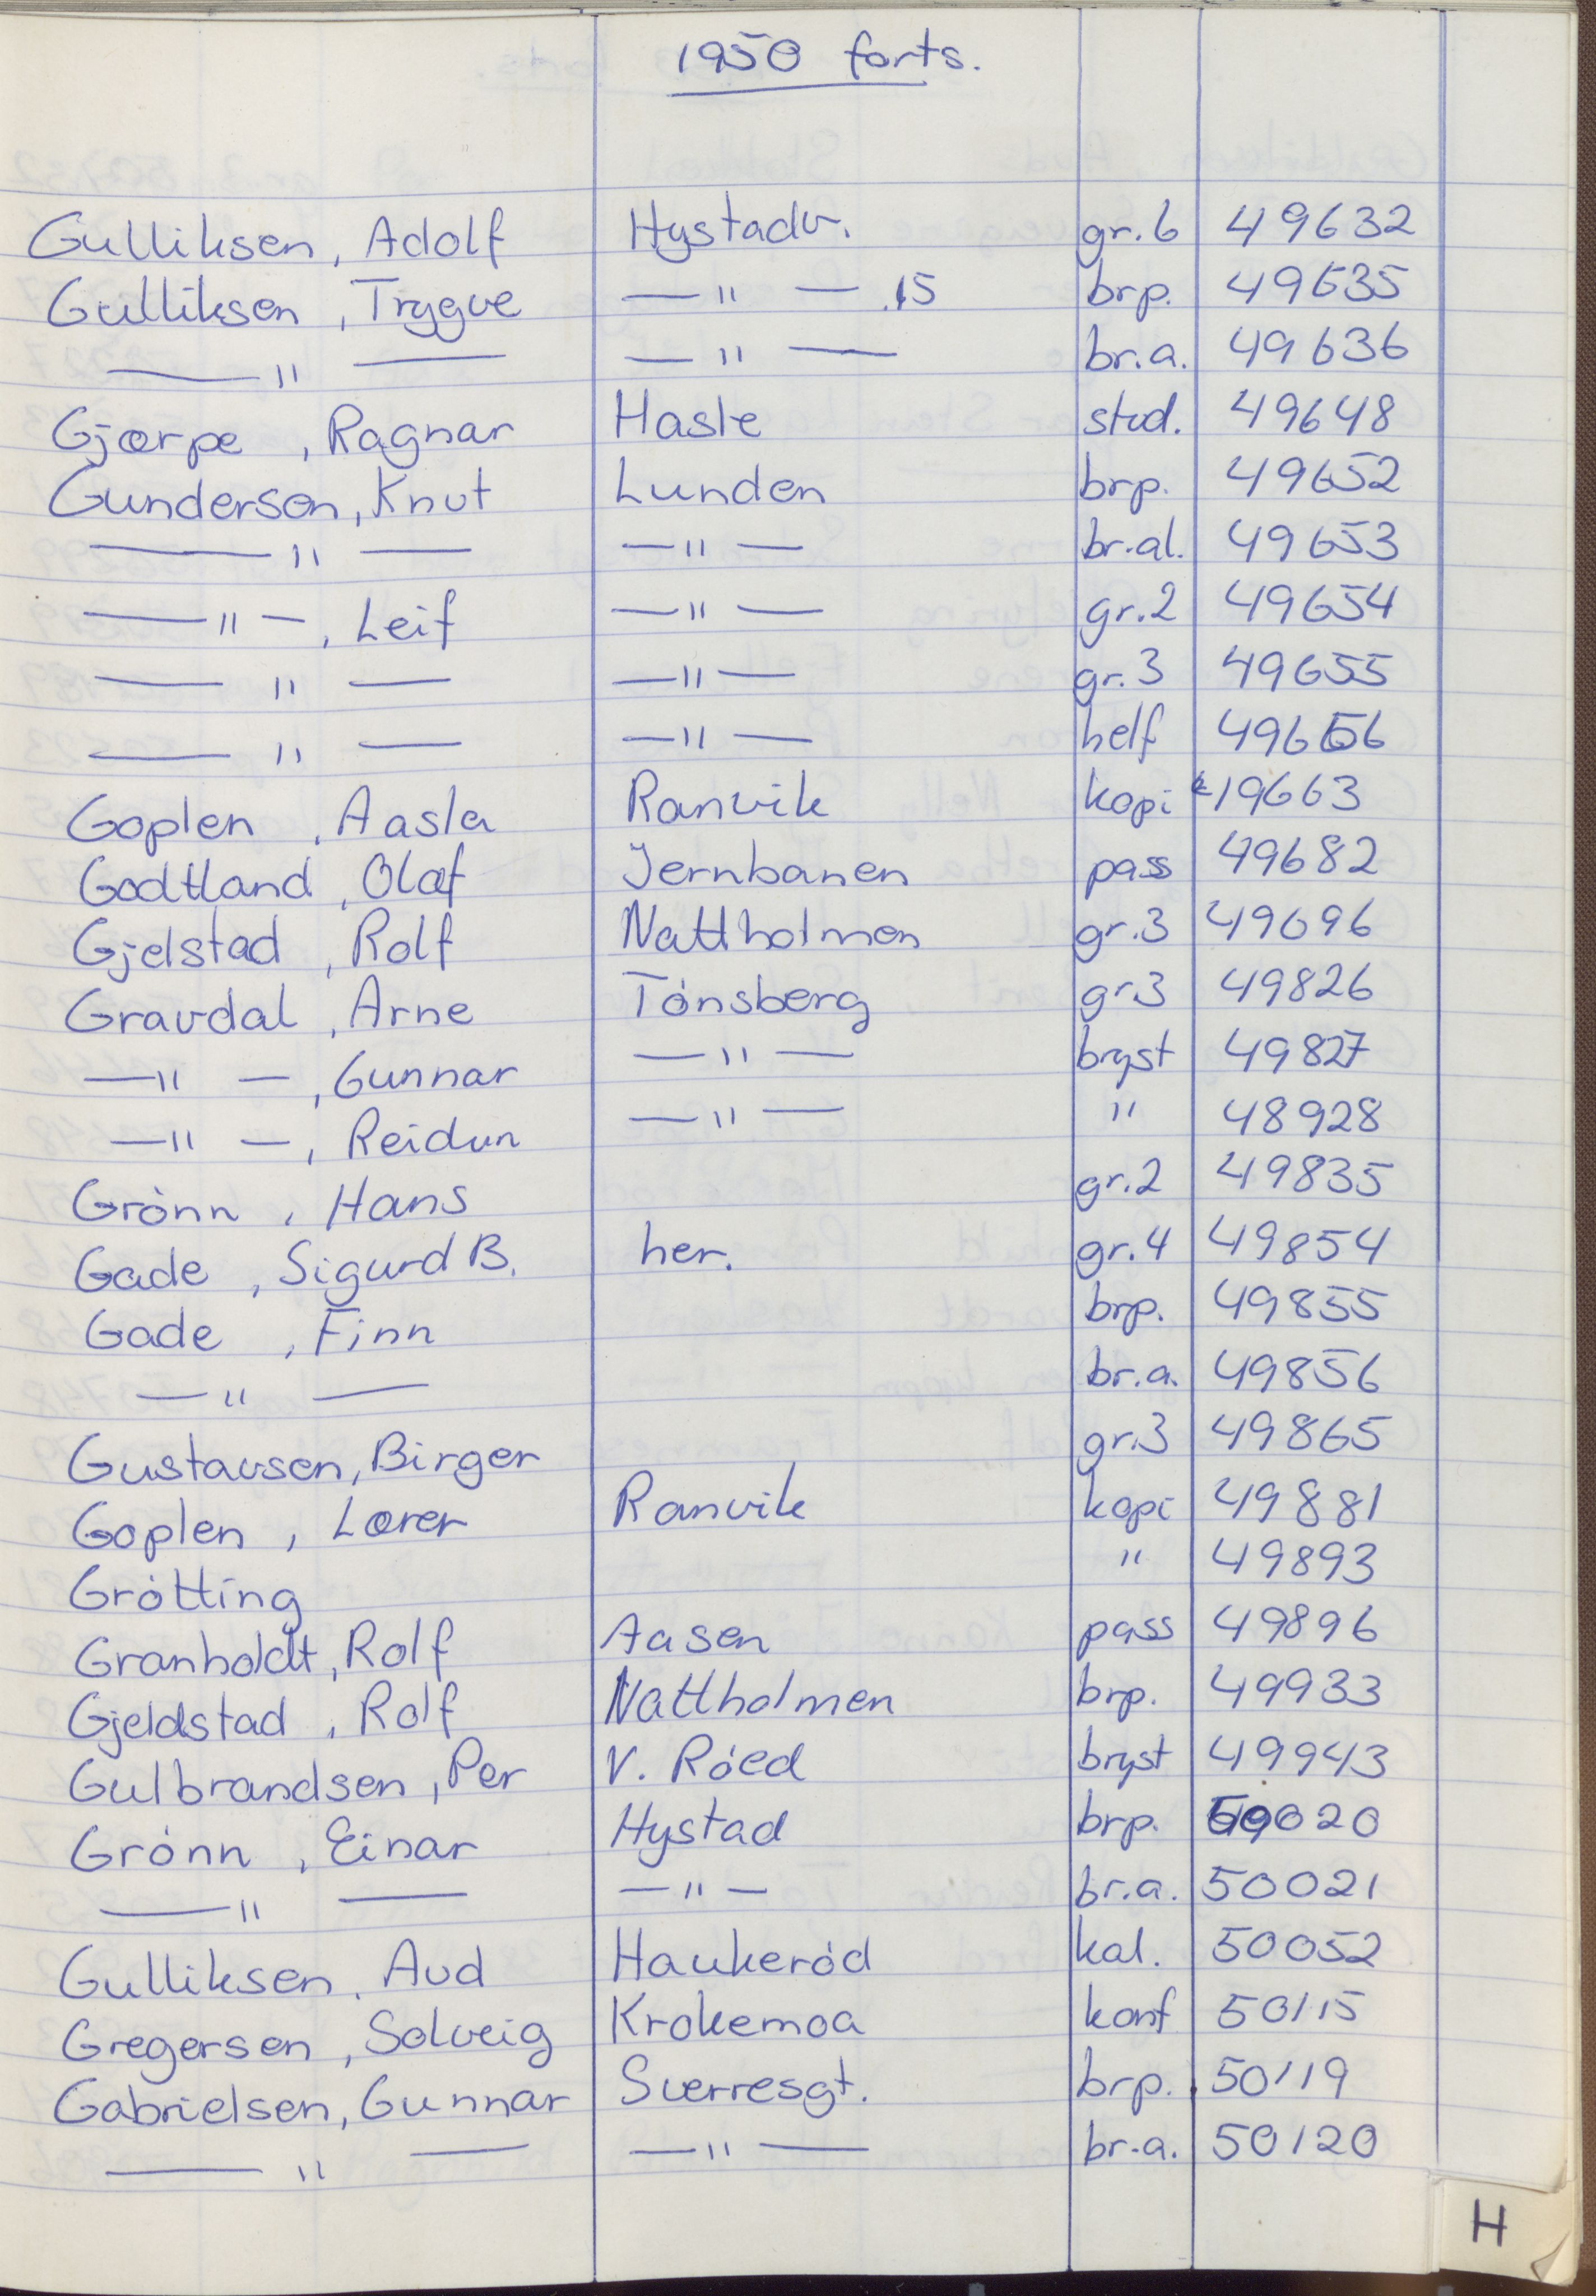 1950 forts.
Gulliksen, Adolf Hystadv. gr.6 49632
Gulliksen, Trygve —"— 15 brp. 49635
—"— —"— br.a. 49636
Gjærpe, Ragnar Hasle stud. 49648
Gundersen, Knut Lunden brp. 49652
—"— —"— br.al. 49653
—"—, Leif —"— gr.2 49654
—"— —"— gr.3 49655
—"— —"— helf 49656
Goplen, Aasla Ranvik kopi 49663
Godtland, Olaf Jernbanen pass 49682
Gjelstad, Rolf Nattholmen gr.3 49696
Gravdal, Arne Tónsberg gr3 49826
—"—, Gunnar —"— bryst 49827
—"—, Reidun —"— " 48928
Grónn, Hans gr.2 49835
Gade, Sigurd B. her. gr.4 49854
Gade, Finn brp. 49855
—"— br.a. 49856
Gustavsen, Birger gr.3 49865
Goplen, Lærer Ranvik kopi 49881
Grótting " 49893
Granholdt, Rolf Aasen pass 49896
Gjeldstad, Rolf Nattholmen brp. 49933
Gulbrandsen, Per V. Róed bryst 49943
Grónn, Einar Hystad brp. 50020
—"— —"— br.a. 50021
Gulliksen, Aud Haukeród kal. 50052
Gregersen, Solveig Krokemoa konf 50115
Gabrielsen, Gunnar Sverresgt. brp. 50119
—"— —"— br.a. 50120
H